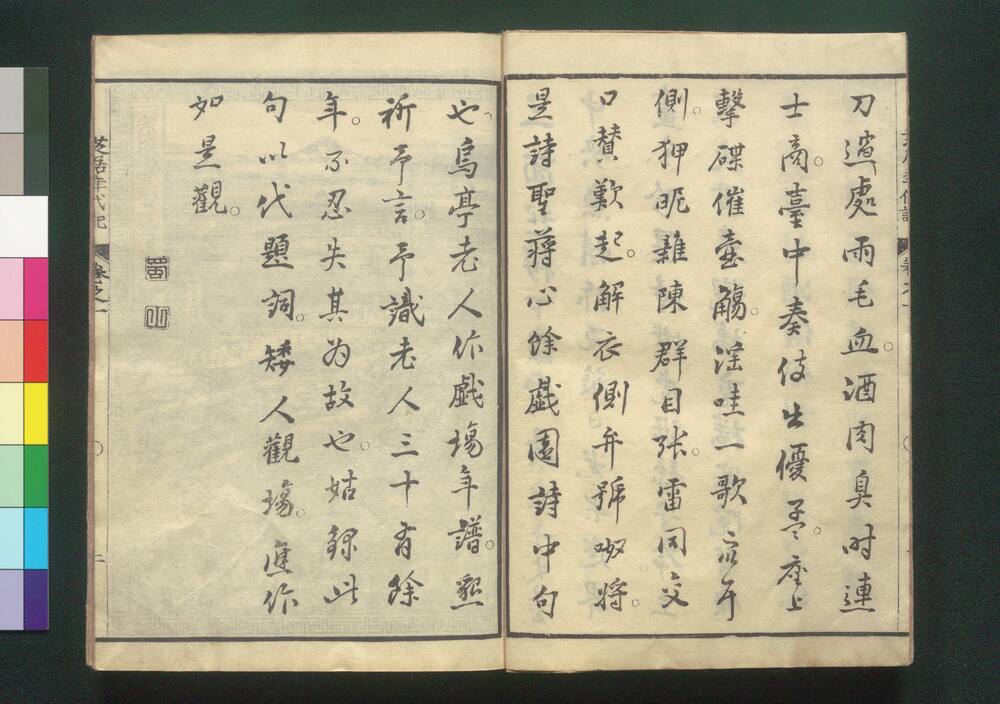 刀過處雨毛血。酒肉臭时連
士商。臺中奏伎出優孟。座上
擊碟催壺觴。淫哇一歌衆耳
側。狎昵雜陳群目張。雷同交
口賛歎起。解衣側弁號呶將。
是詩聖蒋心餘戯園詩中句
也、烏亭老人作戯場年譜。懇
祈予言。予識老人三十有餘
年。不忍失其为故也。姑録此
句以代題詞。矮人觀場。應作
如是觀。
蜀山
芝居年代記 巻之一 二